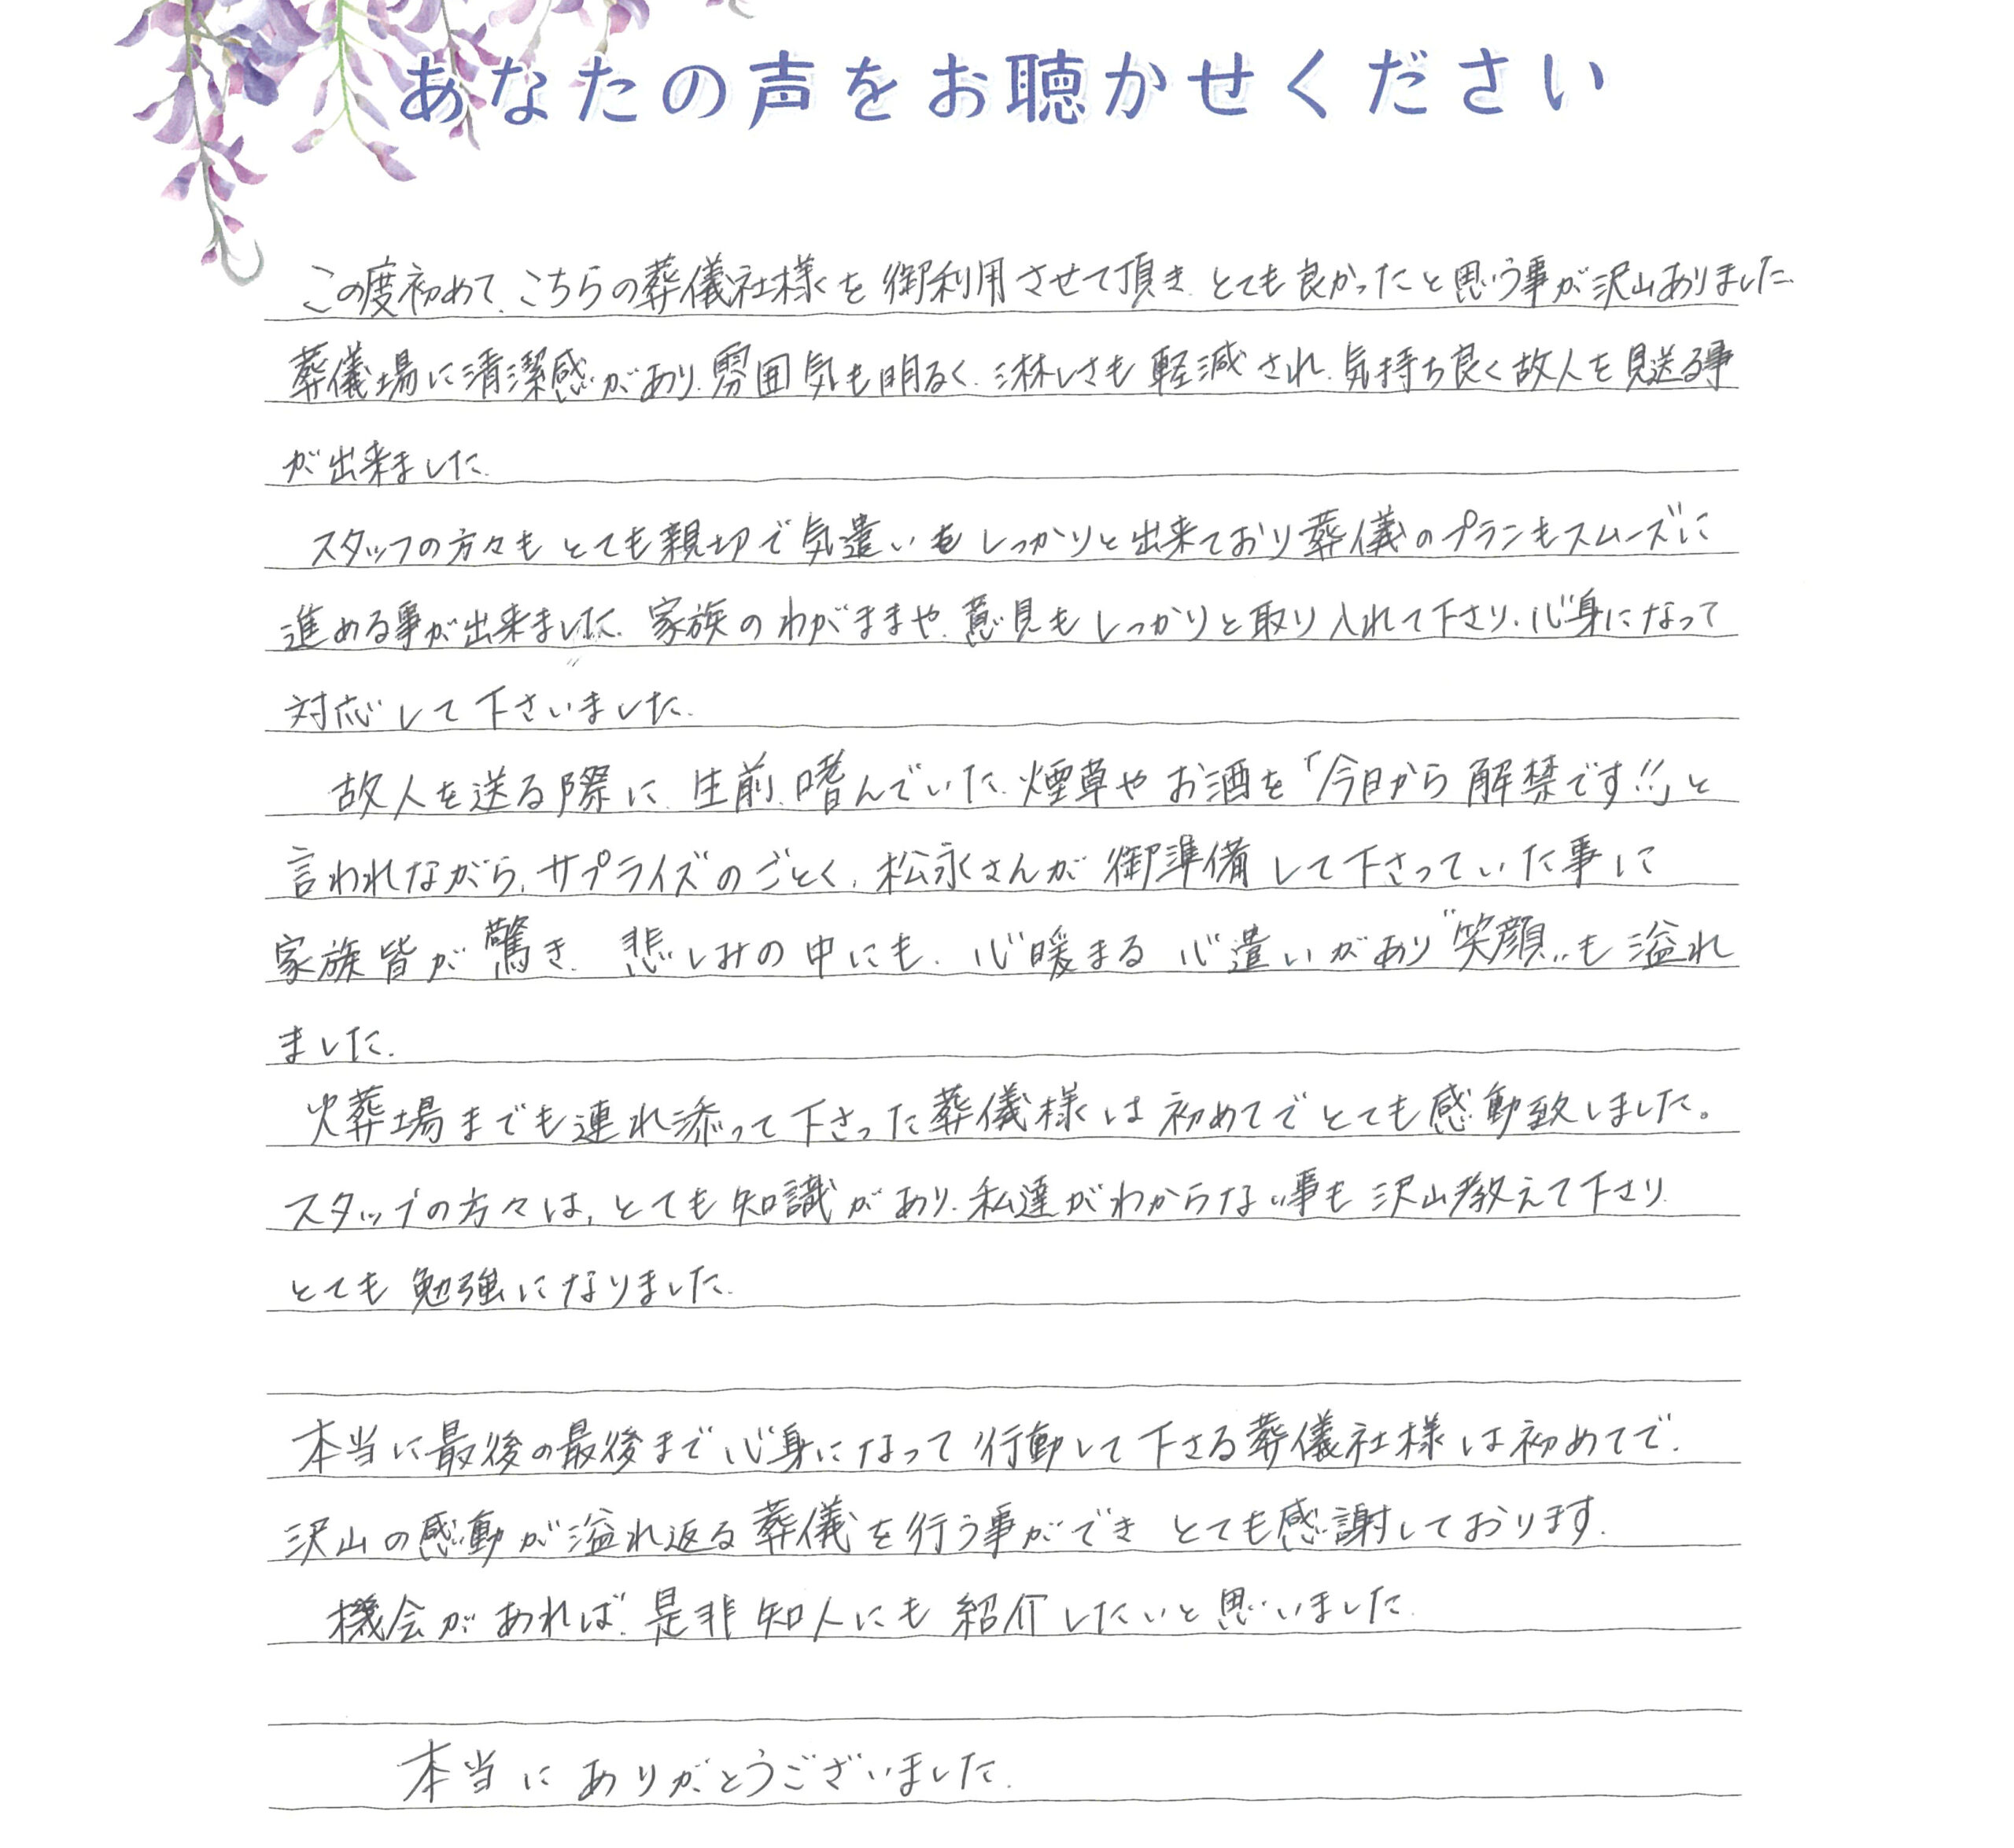 あなたの声をお聴かせください
この度初めて、こちらの葬儀社様を御利用させて頂き、とても良かったと思う事が沢山ありました。
葬儀場に清潔感があり、雰囲気も明るく、淋しさも軽減され、気持ち良く故人を見送る事
が出来ました。
スタッフの方々もとても親切で気遣いもしっかりと出来ており葬儀のプランもスムーズに
進める事が出来ました。家族のわがままや、意見もしっかりと取り入れて下さり、心身になって
対応して下さいました。
故人を送る際に、生前、嗜んでいた、煙草やお酒を「今日から解禁です!!」と
言われながら、サプライズのごとく、松永さんが御準備して下さっていた事に
家族皆が驚き、悲しみの中にも、心暖まる心遣いがあり〝笑顔〟も溢れ
ました。
火葬場までも連れ添って下さった葬儀様は初めてでとても感動致しました。
スタッフの方々は、とても知識があり、私達がわからない事も沢山教えて下さり
とても勉強になりました。
本当に最後の最後まで心身になって行動して下さる葬儀社様は初めてで、
沢山の感動が溢れ返る葬儀を行う事ができとても感謝しております。
機会があれば、是非知人にも紹介したいと思いました。
本当にありがとうございました。